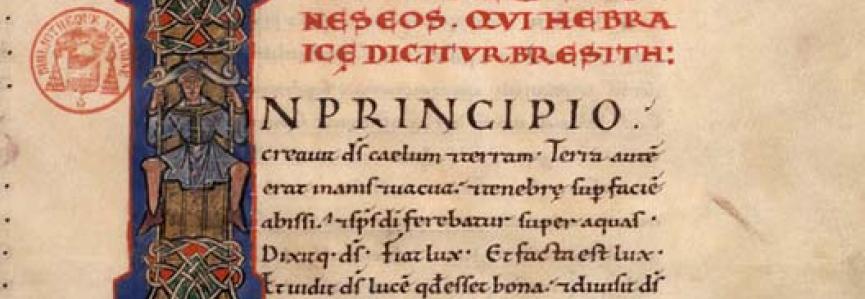 NESEOS. QVI HEBRA
ICĘ DICITVR BRESITH:
IN PRINCIPIO.
creauit dš caelum ⁊ terram. Terra autē
erat inanis ⁊ uacua. ⁊ tenebrę sup faciē
abissi. ⁊ sps di ferebatur super aquas.
Dixitq. dš. Fiat lux. Et facta est lux.
Et uidit dš lucē qđ esset bona. ⁊ diuisit dš
BIBLIOTHEQUE MAZARINE